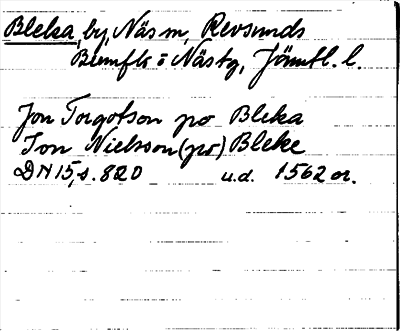 Bleka, by, Näs sn, Revsunds
Brunflo o Näs tg, Jämtl. l.
Jon Torgotson po Bleka
Jon Nielsson (po) Bleke
DN 15, s. 820 u.d. 1562 or.